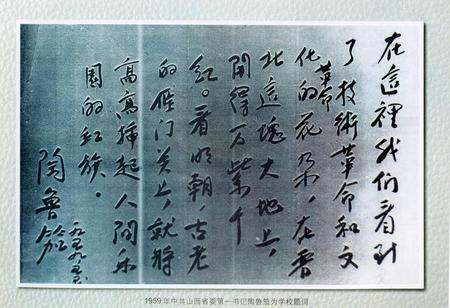 在這裡我们看到
了技術革命和文
化革命的花朵,在晋
北這塊大地上,
開得万紫千
红。看明朝,古老
的雁门关上,就将
高高插起人间乐
園的红旗。
陶魯笳
1959年中共山西省委第一书记陶鲁笳为学校题词